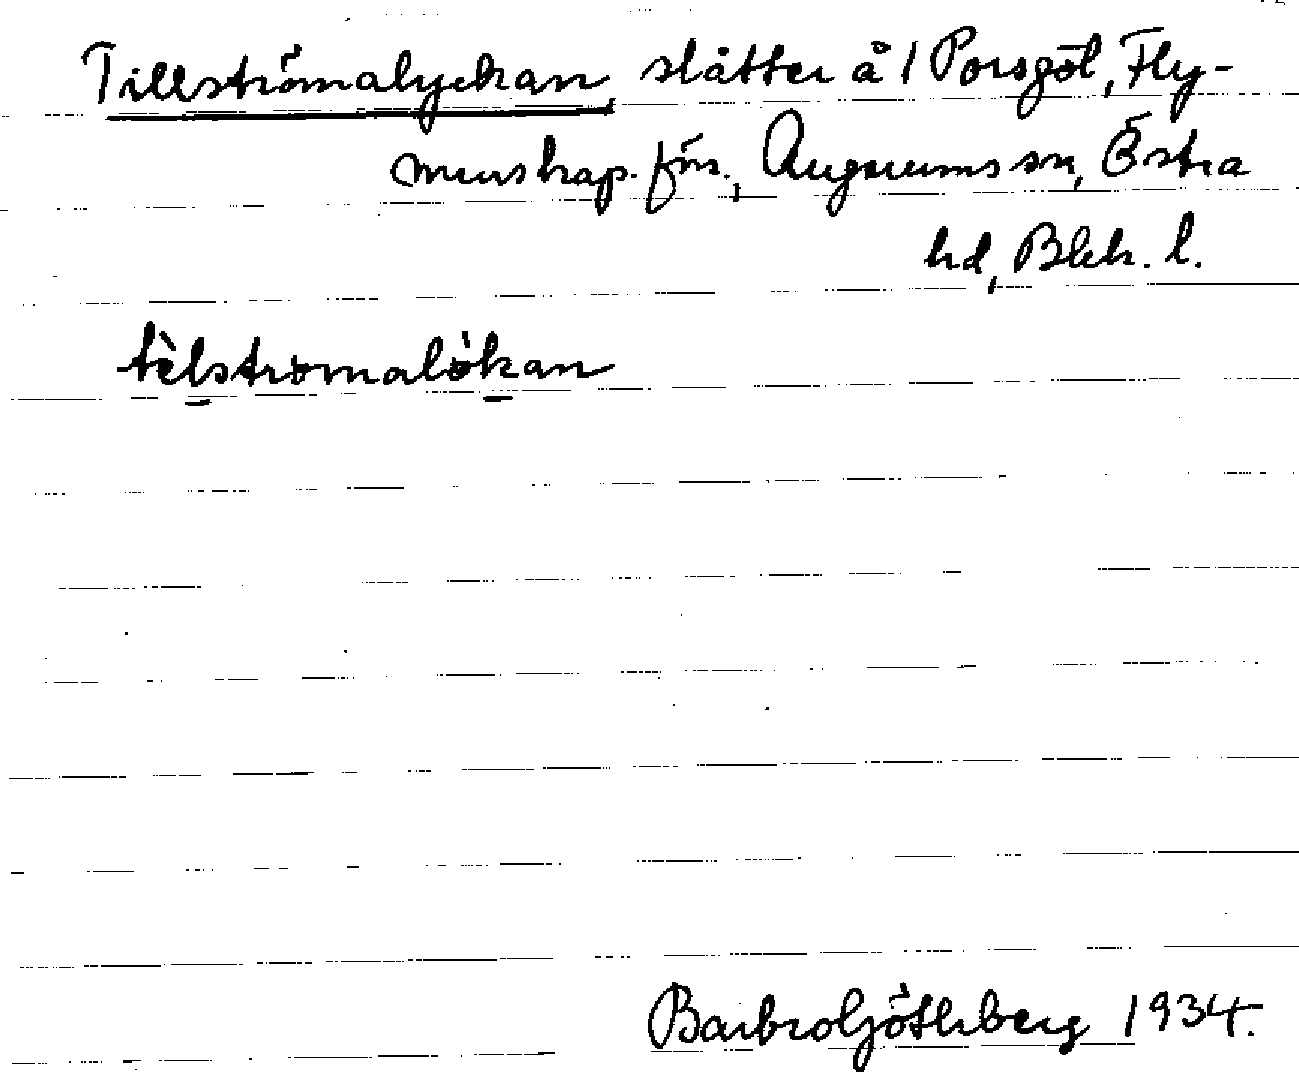 Tillströmalyckan, slåtter å 1 Porsgöl, Fly-
menskap. förs., Augerums sn, Östra
hd, Blek. l.
tèlstrωmalòkan
Barbro Göthberg 1934.